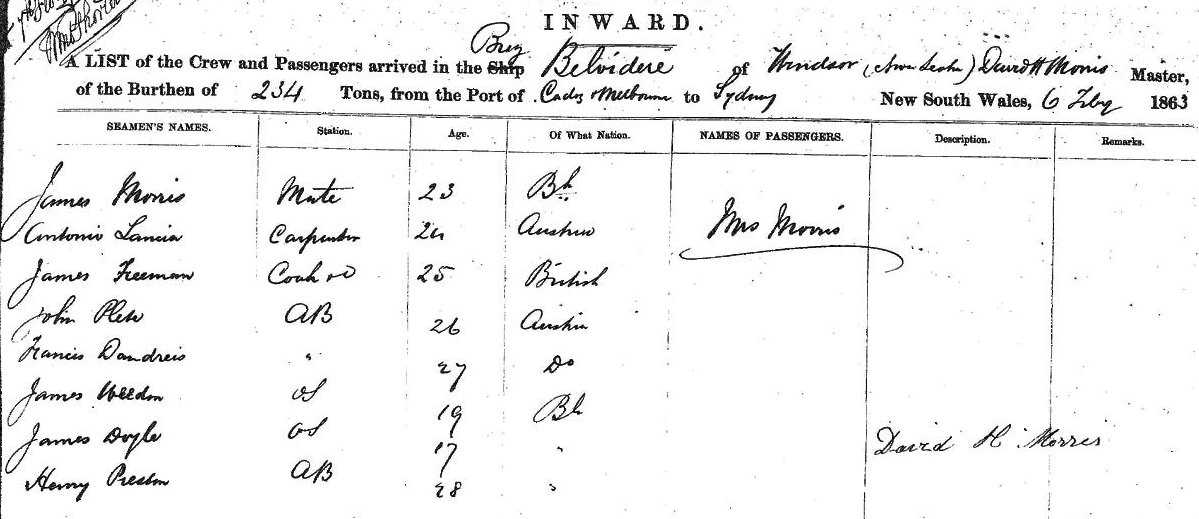 INWARD.
Brig
A LIST of the Crew and Passengers arrived in the Ship Belvidere of Windsor David H Morris Master,
of the Burthen of 234 Tons, from the Port of & Melbourne to Sydney New South Wales, 6 Feby 1863
SEAMEN'S NAMES. Station. Age. Of What Nation. NAMES OF PASSENGERS. Description. Remarks.
James Morris Mate 23 Bh
Antonio Lancia Carpenter 24 Austria Mrs Morris
James Freeman Cook 25 British
John AB 26 Austria
Francis Dandreis " 27 Do
James Weedon OS 19 Bh
James Doyle OS 17 " David H Morris
Henry Preston AB 28 "